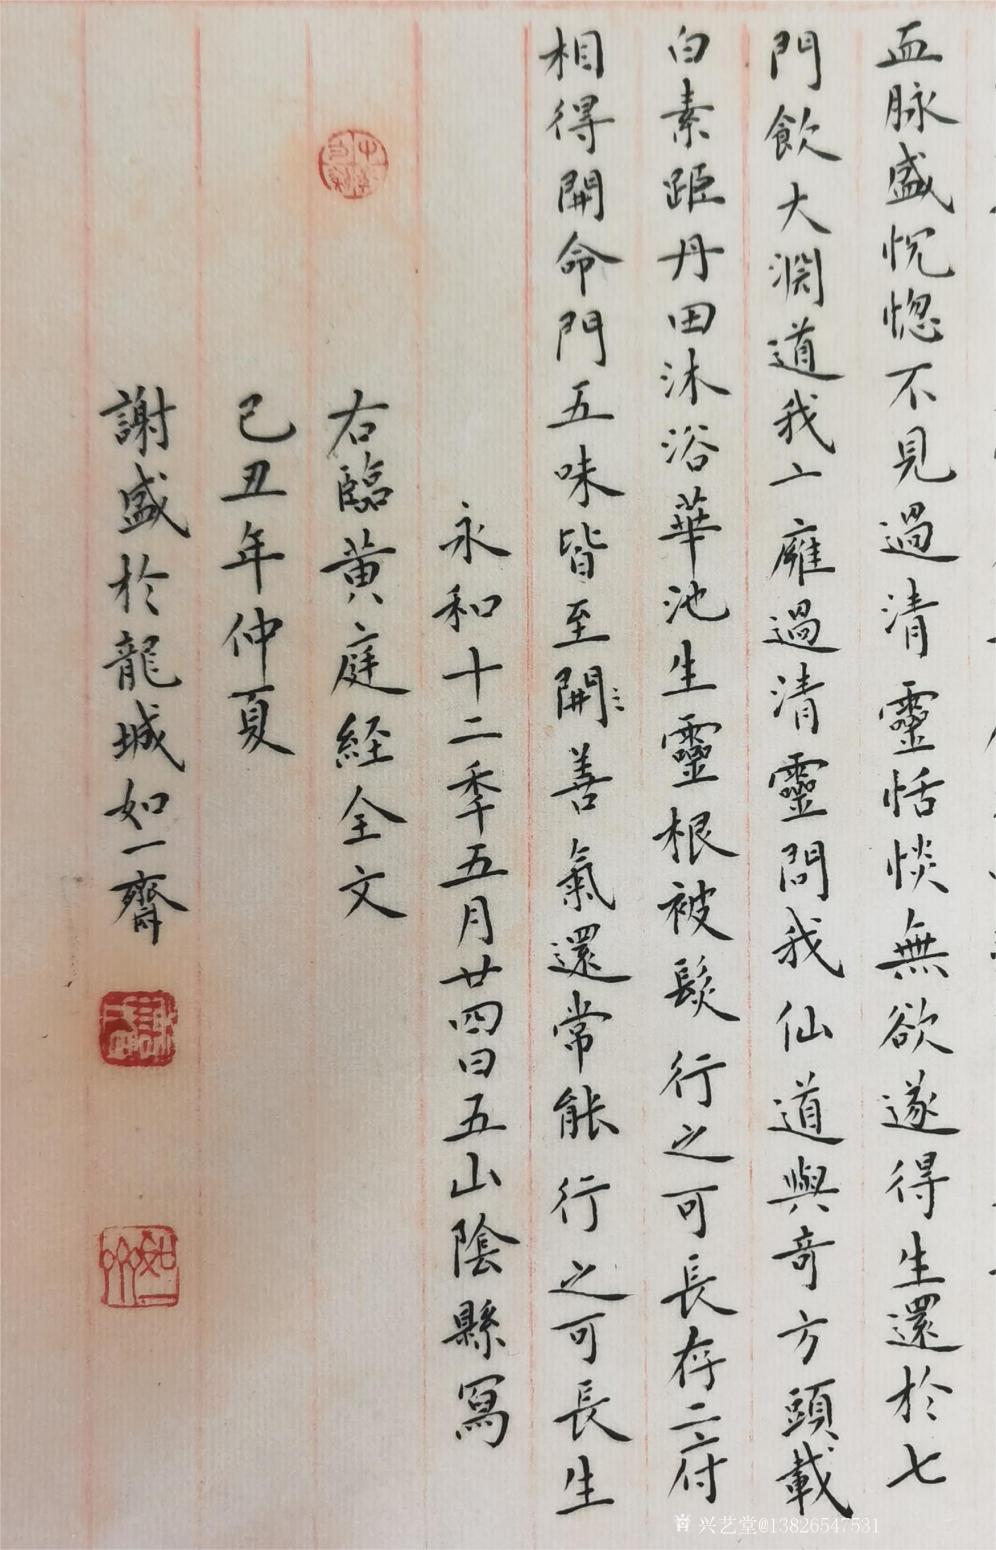 血脉盛恍惚不見過清靈恬惔無欲遂得生還於七
門飲大淵道我亠廱過清靈問我仙道與奇方頭載
白素距丹田沐浴華池生靈根被髮行之可長存二府
相得開命門五味皆至開善氣還常能行之可長生
永和十二季五月廿四日五山陰縣寫
右臨黄庭経全文
己丑年仲夏
謝盛於龍城如一齋
兴艺堂@13826547531